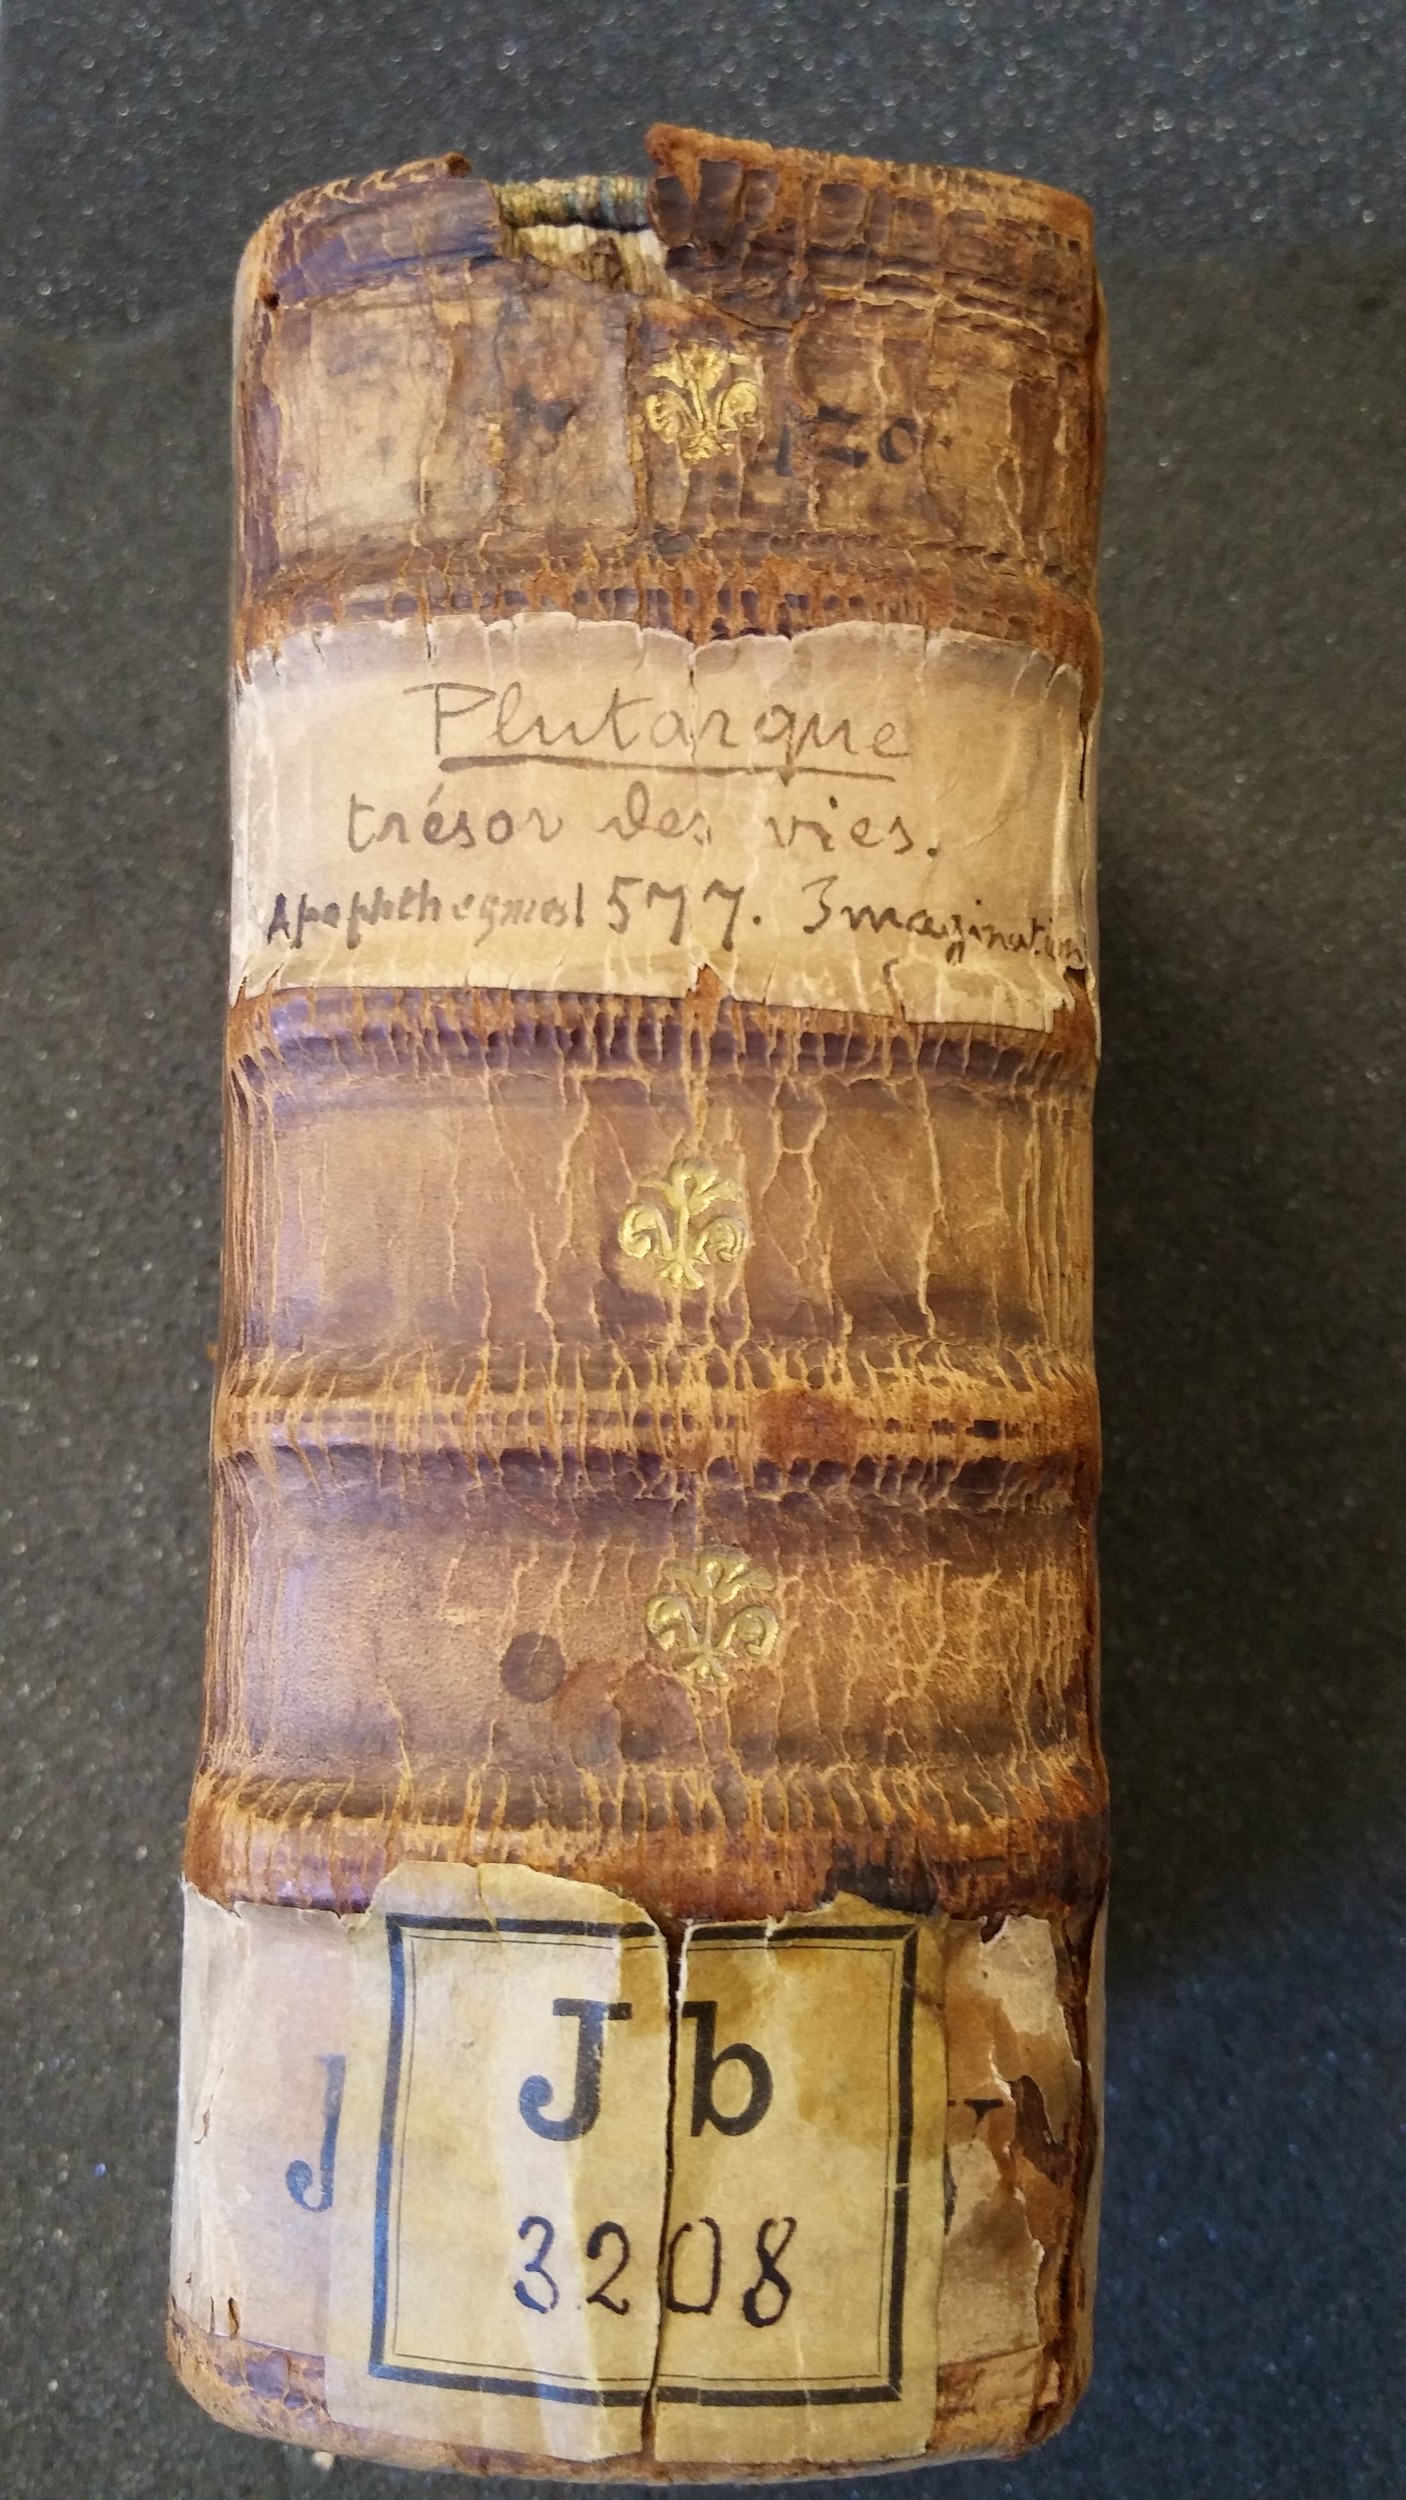 120
Plutarque
trésor des vies.
Apophthegmes 1577. Imagination
J b
J
3208